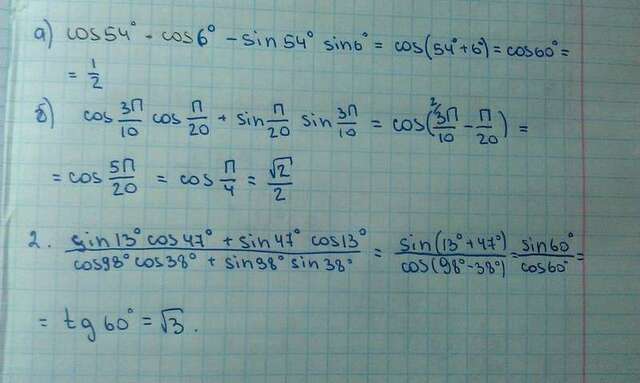 а) cos54° · cos6° - sin54° sin6° = cos(54°+6°) = cos60° =
= 1/2
б) cos 3π/10 cos π/20 + sin π/20 sin 3π/10 = cos(²⁄3π/10 - π/20) =
= cos 5π/20 = cos π/4 = √2/2
2. sin13° cos47° + sin47° cos13° / cos98° cos38° + sin98° sin38° = sin(13°+47°) / cos(98°-38°) = sin60° / cos60° =
= tg60° = √3.